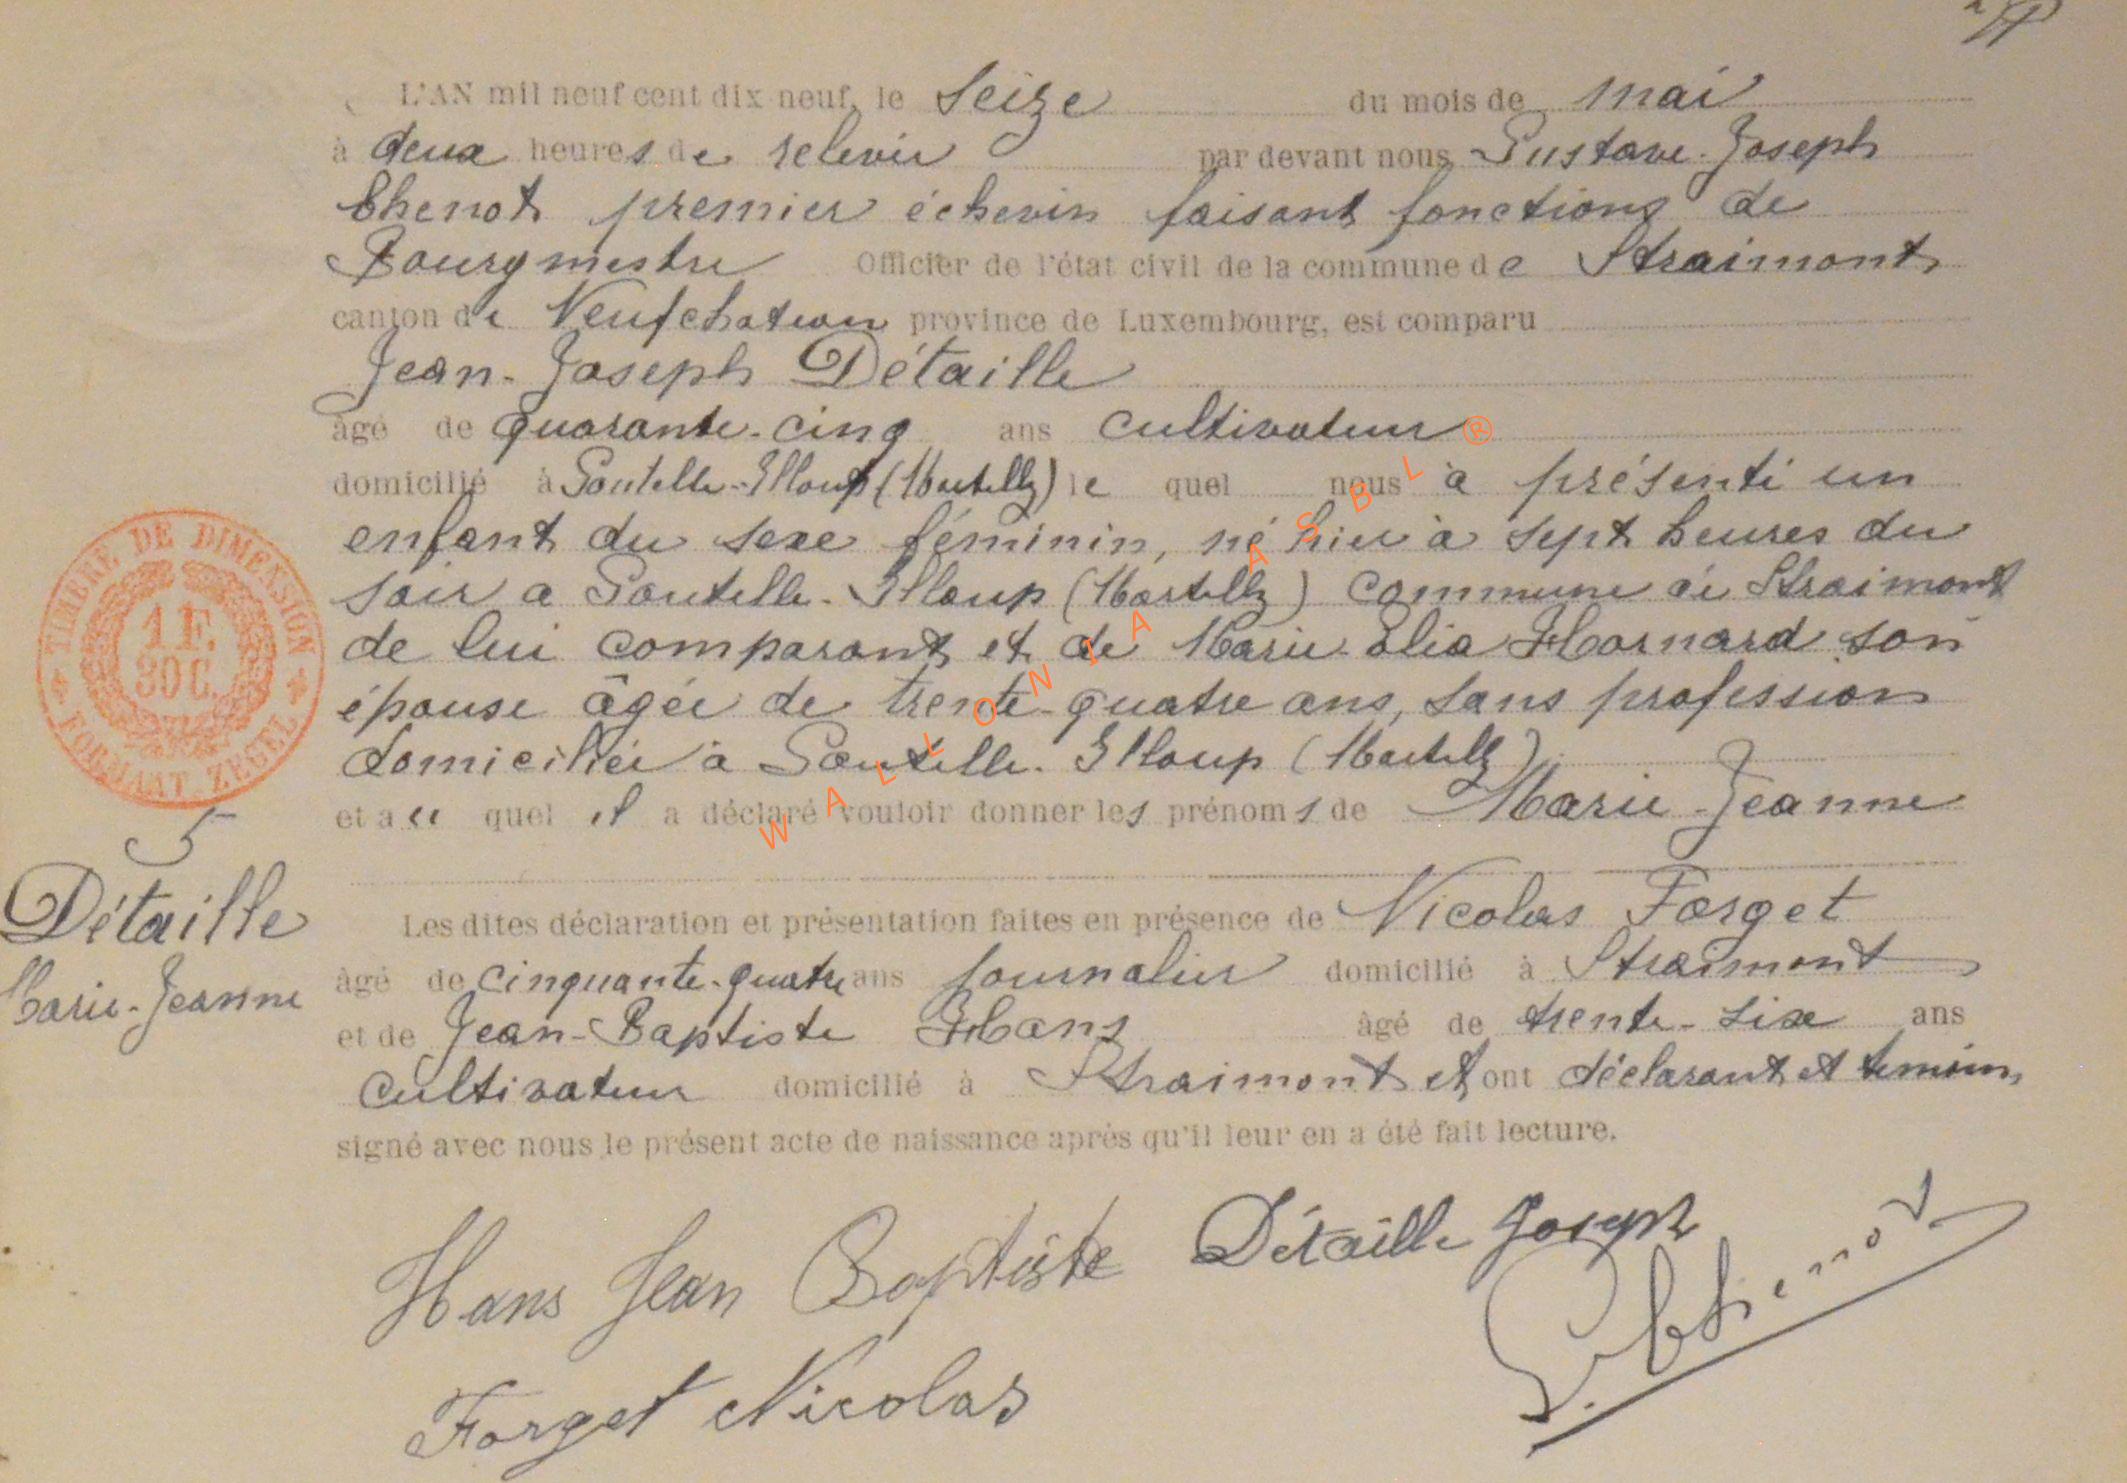 L'AN mil neuf cent dix neuf, le seize du mois de mai
à deux heures de relevée par devant nous Gustave Joseph
Chenot premier échevin faisant fonctions de
Bourgmestre Officier de l'état civil de la commune de Straimont
canton de Neufchateau province de Luxembourg, est comparu
Jean-Joseph Détaille
âgé de quarante-cinq ans cultivateur ®
domicilié à le quel nous à présenté un
enfant du sexe féminin, né hier à sept heures du
soir a commune de Straimont
de lui comparant et de Marie Hornard son
épouse âgée de trente-quatre ans, sans profession
domiciliée à
et a ce quel il a déclaré vouloir donner les prénoms de Marie-Jeanne
Les dites déclaration et présentation faites en présence de Nicolas Forget
âgé de cinquante-quatre ans journalier domicilié à Straimont
et de Jean-Baptiste Hans âgé de trente-six ans
cultivateur domicilié à Straimont et ont déclarant et témoins
signé avec nous le présent acte de naissance après qu'il leur en a été fait lecture.
TIMBRE DE DIMENSION
1 F.
30 C.
FORMAAT ZEGEL
5
Détaille
Marie-Jeanne
WALLONIA ASBL
Hans Jean Baptiste Détaille Joseph
G. Chenot
Forget Nicolas